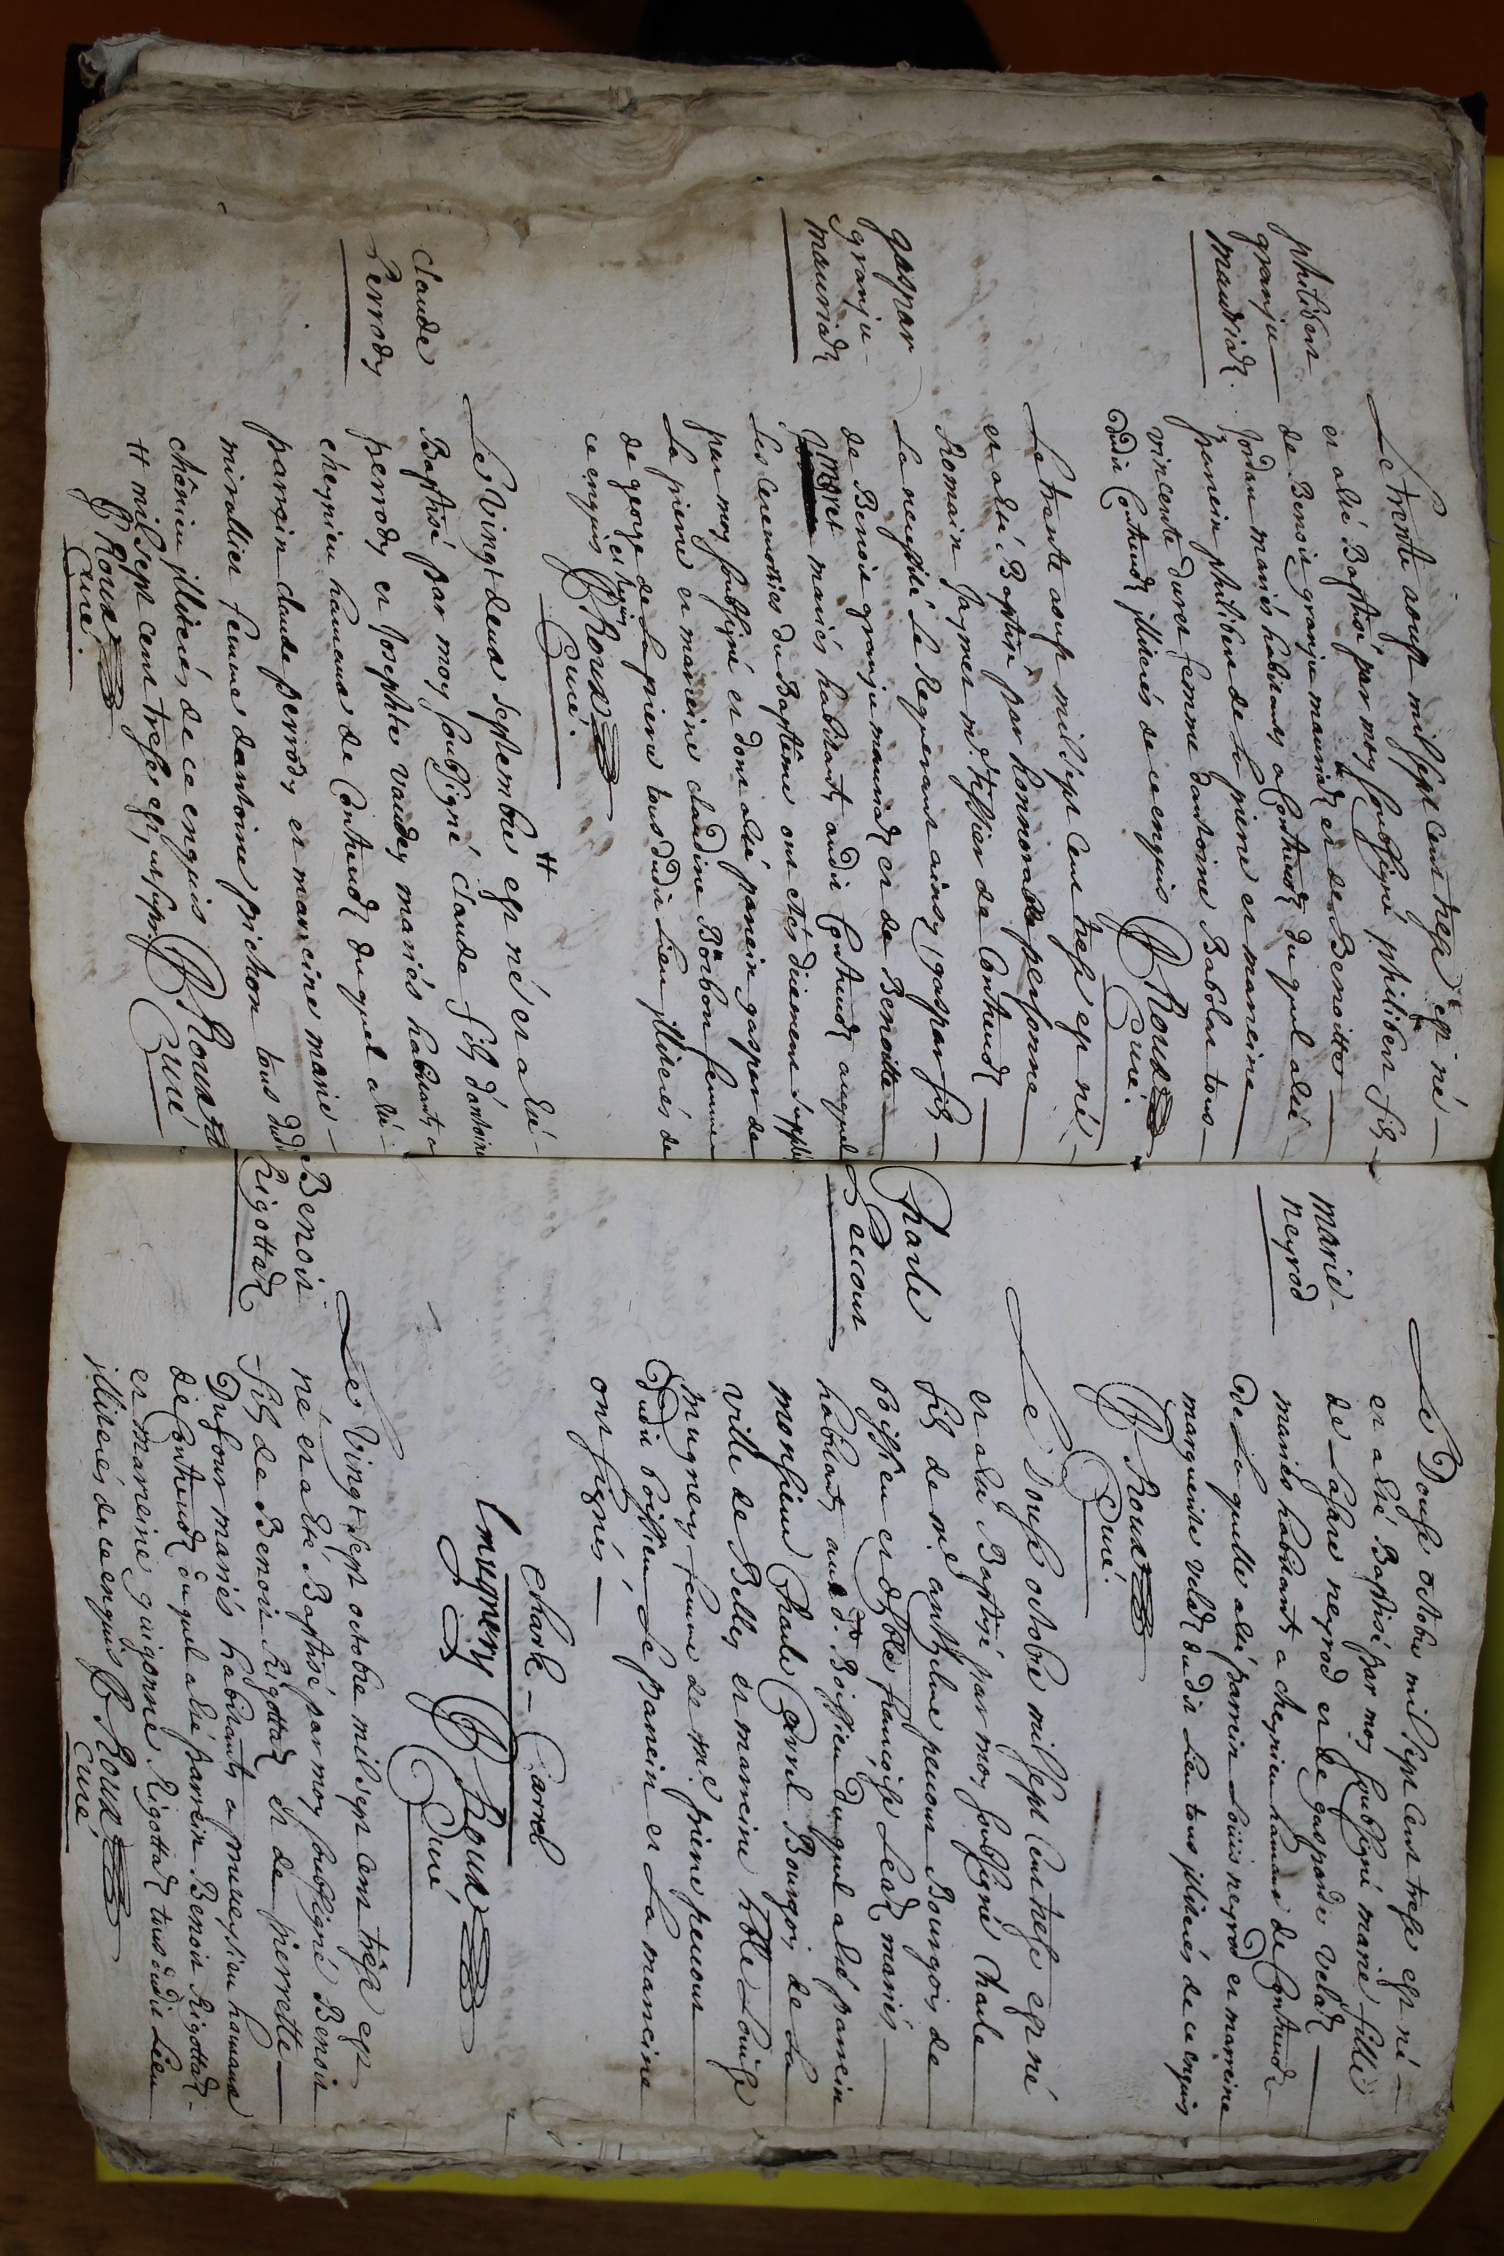 philibert
granju
mauviadz
Le trente aoust mil sept cent treze est né
et a été Baptisé par moy soubsigné philibert fils
de Benoit granju mauviadz et de Benoitte
Jordan mariés habitants a Contreuvoz du quel a été
parrein philibert de la pierre et marreine
vincente duret femme dantoine Babolat tous
dudit Contreuvoz illiterés de ce enquis B Roux
Curé.
gaspar
granju
mauviadz
Le trente aoust mil sept cent treze est né
et a été Baptisé par honnorable personne
Romain Jaymes md. tissier de Contreuvoz
La necessité Le Requerant ainsy, gaspar fils
de Benoit granju mauviadz et de Benoitte
moret mariés habitants audit Contreuvoz auquel
Les Ceremonies du Baptême ont étés duement supplé
par moy soubsigné et dont a été parrein gaspar de
La pierre et marreine claudine Bourbon femme
de george de La pierre tous dudit Lieu illiterés de
ce enquis B Roux
Curé.
claude
Perrody
Le Vingt deux septembre # est né et a été
Baptisé par moy soubsigné claude fils d'antoine
perrody et Josephte vaudey mariés habitants a
cheynieu hameau de Contreuvoz du quel a été
parrein claude perrody et marreine marie
mirallier femme dantoine pichon tous dudit
chênieu illiterés de ce enquis B Roux
# mil sept cent treses est, ut supr. Curé
B Roux
Curé.
marie
neyrod
Le Douse octobre mil sept cent trese est né
et a été Baptisé par moy soubsigné marie fille
de Lasare neyrod et de gasparde velât
mariés habitants a cheynieu hameau de Contreuvoz
de La quelle a été parrein Louis neyrod et marreine
marguerite velât dudit Lieu tous illiterés de ce enquis
B Roux
Curé.
Charle
Peccout
Le Douse octobre mil sept Cent trese est né
et a été Baptisé par moy soubsigné Charle
fils de mre anthelme peccout Bourgois de
Boissieu et dlle françoise Leadz mariés
habitants aud. Boissieu du quel a été parrein
monsieur Charle Carrel Bourgois de La
ville de Belley et marreine hble Louise
mugnery femme de mre pierre peccout
dudit boissieu Le parrein et La marreine
ont signés
charle Carrel
l mugnery B Roux
Curé
Benoit
Rigottadz
Le Vingt sept octobre mil sept cent trese est
né et a été Baptisé par moy soubsigné Benoit
fils de Benoit Rigottadz et de pierrette
Dufour mariés habitants a preveyzieu hameau
de Contreuvoz du quel a été parrein Benoit Rigottadz
et marreine guigonne Rigottadz tous dudit Lieu
illiterés de ce enquis B Roux
Curé